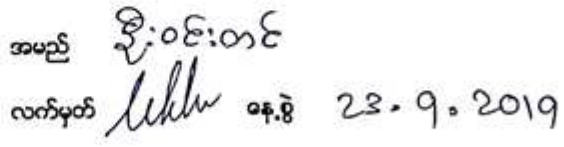 အမည် ဦးဝင်းတင်
လက်မှတ် နေ့စွဲ 23.9.2019